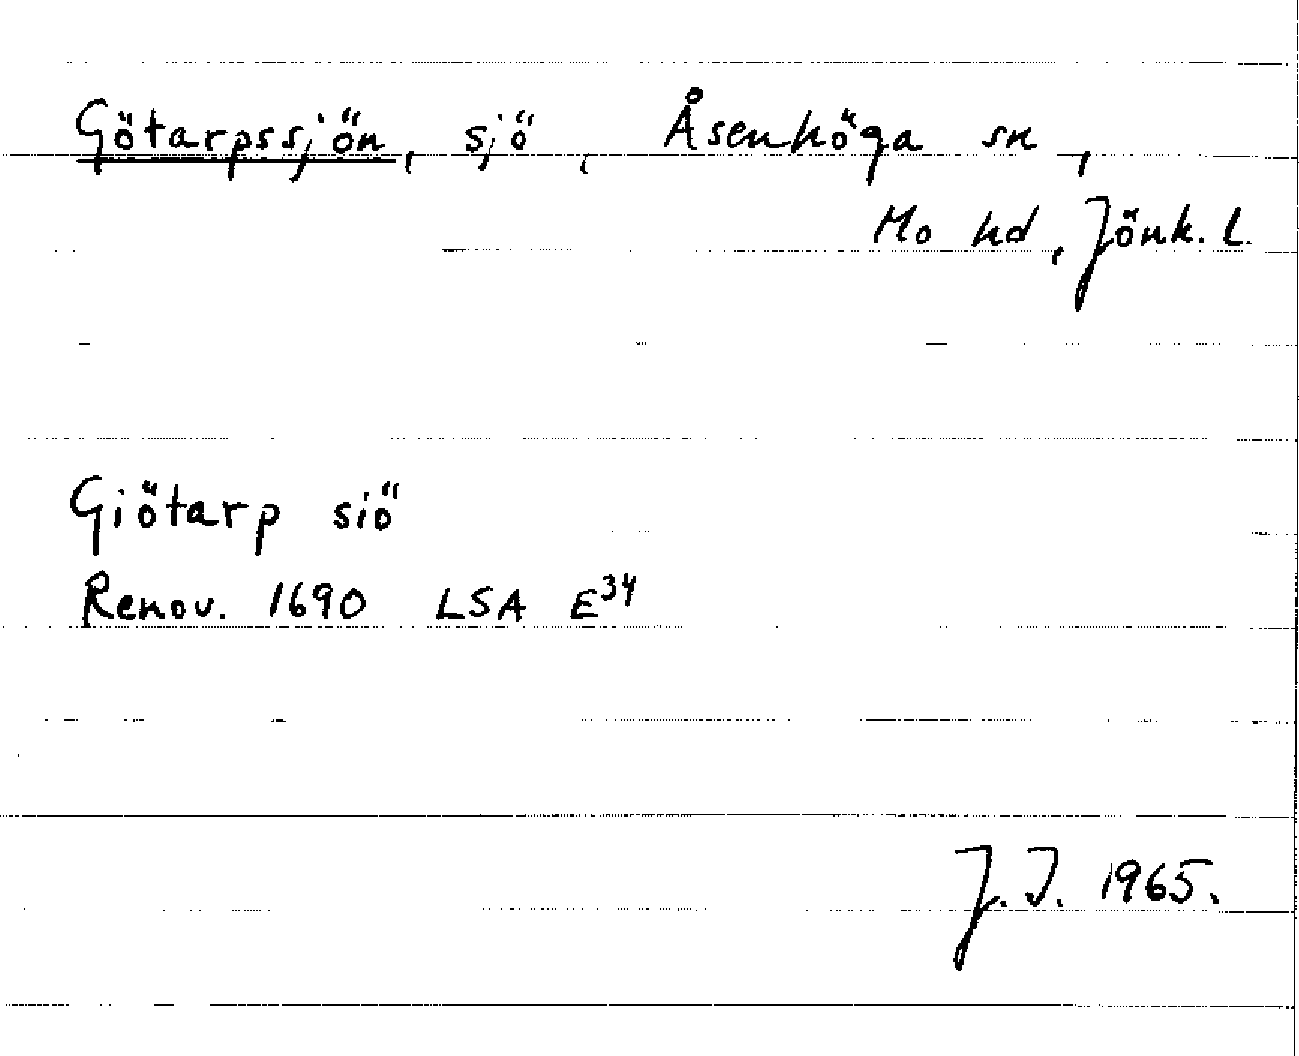 Götarpssjön, sjö, Åsenhöga sn,
Mo hd, Jönk. l.
Giötarp siö
Renov. 1690 LSA E³⁴
J.I. 1965.